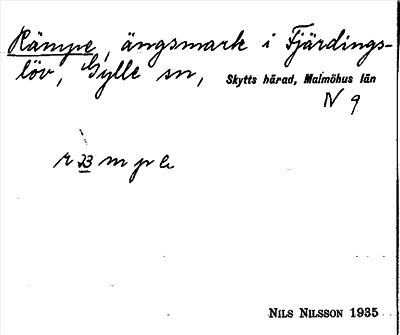 Rämpe, ängsmark i Fjärdings-
löv, Gylle sn, Skytts härad, Malmöhus län
N 9
NILS NILSSON 1935